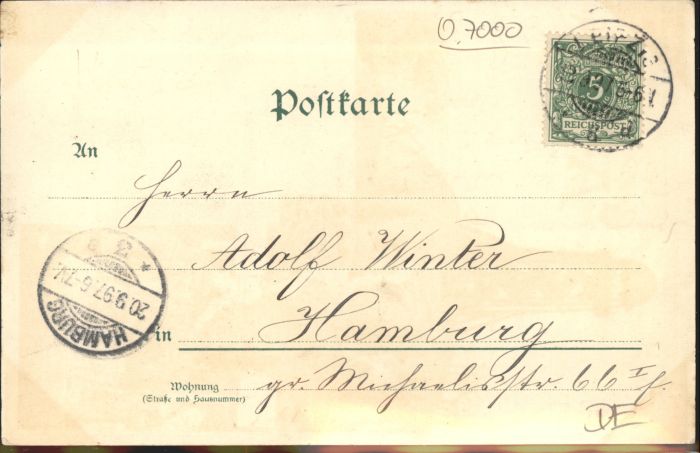 O.7000
LEIPZIG
5
REICHSPOST
Postkarte
An
Herrn
Adolf Winter
in Hamburg
Wohnung
(Straße und Hausnummer)
gr. Michaelisstr. 66 I
DE
HAMBURG
20.9.97.6-7V.